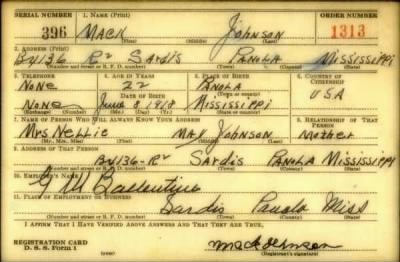 SERIAL NUMBER 1. NAME (Print) ORDER NUMBER
396 MACK JOHNSON 1313
(First) (Middle) (Last)
2. ADDRESS (Print)
Bx 136 R2 SARDIS PANOLA MISSISSIPPI
(Number and street or R. F. D. number) (Town) (County) (State)
3. TELEPHONE 4. AGE IN YEARS 5. PLACE OF BIRTH 6. COUNTRY OF CITIZENSHIP
NONE 22 PANOLA
DATE OF BIRTH (Town or county) USA
NONE June 8 1918 MISSISSIPPI
(Exchange) (Number) (Mo.) (Day) (Yr.) (State or country)
7. NAME OF PERSON WHO WILL ALWAYS KNOW YOUR ADDRESS 8. RELATIONSHIP OF THAT PERSON
Mrs NELLIE MAY JOHNSON Mother
(Mr., Mrs., Miss) (First) (Middle) (Last)
9. ADDRESS OF THAT PERSON
Bx 136-R2 SARDIS PANOLA MISSISSIPPI
(Number and street or R. F. D. number) (Town) (County) (State)
10. EMPLOYER'S NAME
G M Ballentine
11. PLACE OF EMPLOYMENT OR BUSINESS
Sardis Panola Miss
(Number and street or R. F. D. number) (Town) (County) (State)
I AFFIRM THAT I HAVE VERIFIED ABOVE ANSWERS AND THAT THEY ARE TRUE.
REGISTRATION CARD
D. S. S. Form 1 Mack Johnson